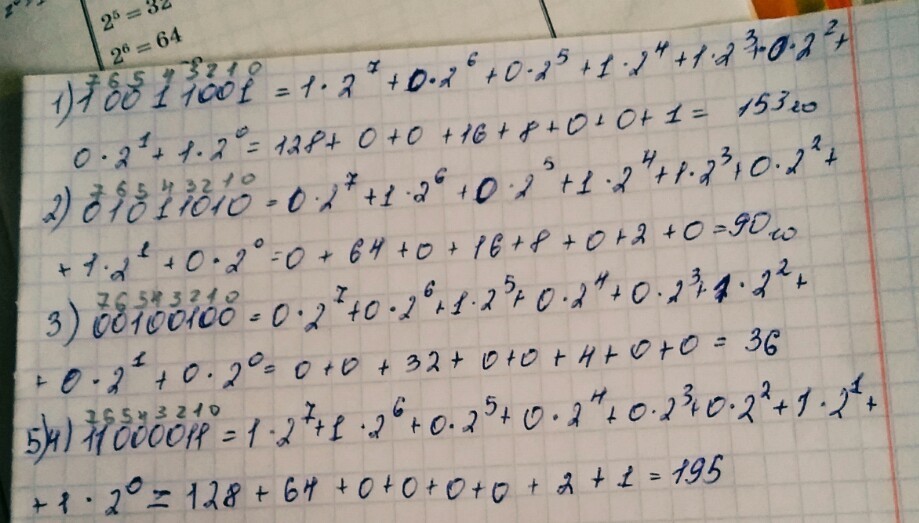 2⁵ = 32
2⁶ = 64
7 6 5 4 3 2 1 0
1) 10011001 = 1·2⁷+0·2⁶+0·2⁵+1·2⁴+1·2³+0·2²+
0·2¹+1·2⁰=128+0+0+16+8+0+0+1= 153₁₀
7 6 5 4 3 2 1 0
2) 01011010=0·2⁷+1·2⁶+0·2⁵+1·2⁴+1·2³+0·2²+
+1·2¹+0·2⁰=0+64+0+16+8+0+2+0=90₁₀
7 6 5 4 3 2 1 0
3) 00100100=0·2⁷+0·2⁶+1·2⁵+0·2⁴+0·2³+1·2²+
+0·2¹+0·2⁰=0+0+32+0+0+4+0+0=36
7 6 5 4 3 2 1 0
5)4) 11000011=1·2⁷+1·2⁶+0·2⁵+0·2⁴+0·2³+0·2²+1·2¹+
+1·2⁰=128+64+0+0+0+0+2+1=195